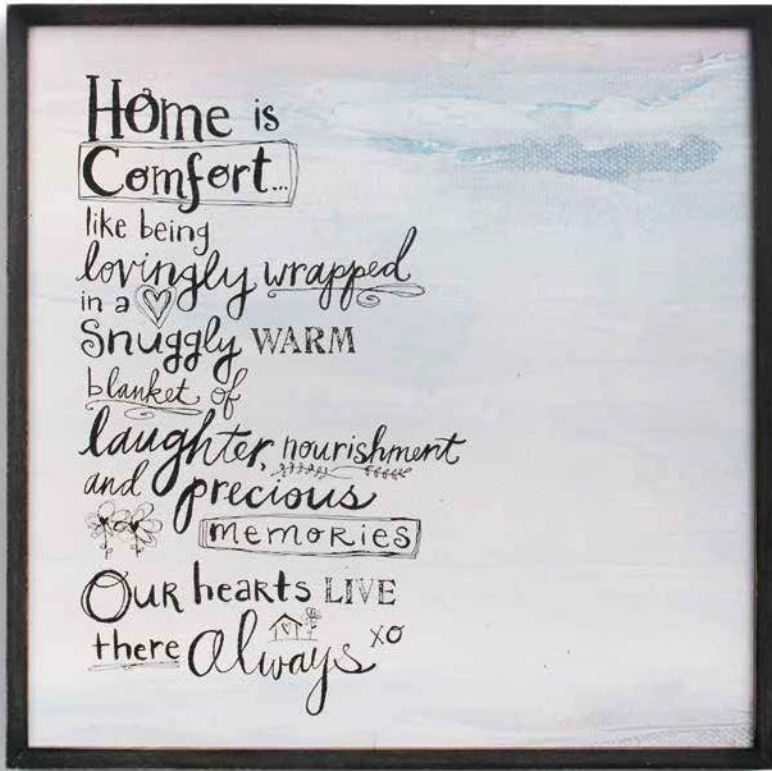 Home is
Comfort...
like being
lovingly wrapped
in a
Snuggly WARM
blanket of
laughter, nourishment
and precious
memories
Our hearts LIVE
there Always xo